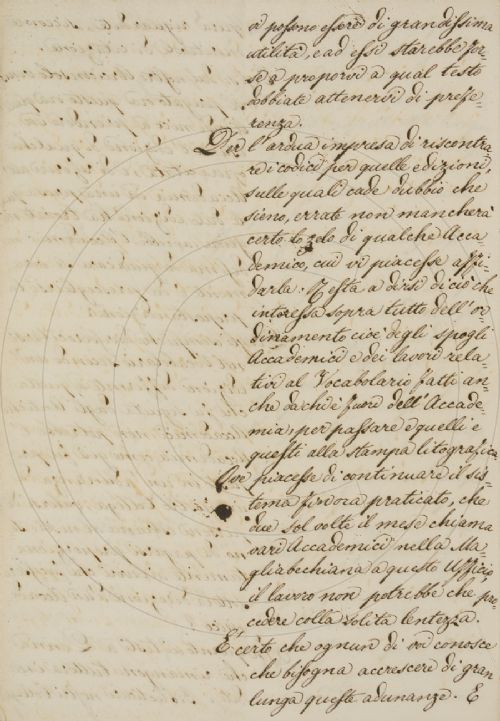 vi possono essere di grandissima
utilità, e ad essi starebbe for-
se a proporvi a qual testo
dobbiate attenervi di prefe-
renza.
Per l'ardua impresa di riscontra
re i codici per quelle edizioni,
sulle quali cade dubbio che
sieno, errate non mancherà
certo lo zelo di qualche Acca-
demico, cui vi piacesse affi-
darla. Resta a dirsi di ciò che
interessa sopra tutto dell'or-
dinamento cioè degli spogli
Accademici e dei lavori rela-
tivi al Vocabolario fatti an-
che da chi è fuori dell'Accade-
mia, per passare e quelli e
questi alla stampa litografica.
Ove piacesse di continuare il sis-
tema finora praticato, che
due sol volte il mese chiama
vari Accademici nella Ma-
gliabechiana a questo Uffizio
il lavoro non potrebbe che pro-
cedere colla solita lentezza.
E' certo che ognun di voi conosce
che bisogna accrescere di gran
lunga queste adunanze. E